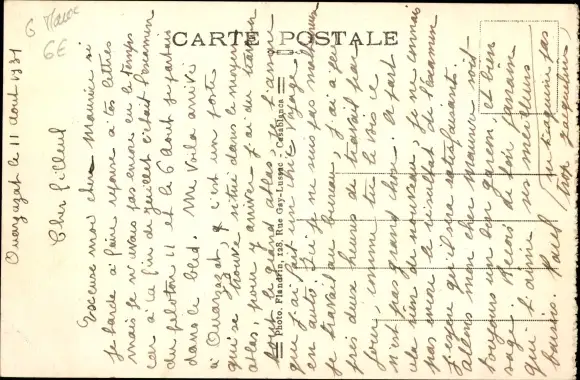 6 Maroc
6E
CARTE POSTALE
Photo. Flandrin, 128, Rue Gay-Lussac - Casablanca
Ouarzazat le 11 Aout 1931
Cher filleul
Excuse moi cher Maurice si
je tarde à faire réponse à tes lettres
mais je n'avais pas encore eu le temps
car à la fin de Juillet c'était l'examen
du peloton 11 et le 6 Août je partais
dans le bled. Me Voila arrivé
à Ouarzazat, c'est un poste
qui se trouve situé dans le moyen
atlas, pour y arriver j'ai du traverser
le grand atlas,
que j'ai fait un voyage
en auto. Ici je ne suis pas malheureux
je travail au bureau, j'ai à peu
près deux heures de travail par
jour comme tu le vois ce
n'est pas grand chose. A part
cela rien de nouveau, je ne connais
pas encore le résultat de l'examen
j'espère qu'il sera satisfaisant.
allons mon cher Maurice soit
toujours un bon garçon et bien
sage. Reçois de ton parrain
qui t'aime ses meilleurs
baisers. Paul